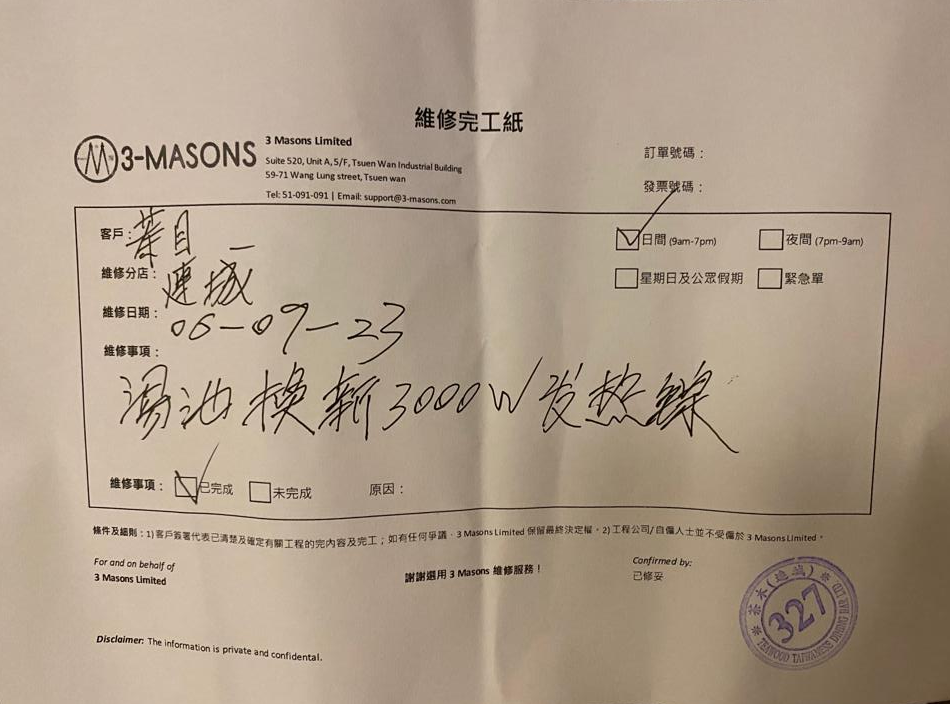 維修完工紙
3-MASONS
3 Masons Limited
Suite 520, Unit A, 5/F, Tsuen Wan Industrial Building
59-71 Wang Lung street, Tsuen wan
Tel: 51-091-091 | Email: support@3-masons.com
訂單號碼：
發票號碼：
客戶：
日間 (9am-7pm)
夜間 (7pm-9am)
維修分店：連城
星期日及公眾假期
緊急單
維修日期：06-09-23
維修事項：
湯池換新3000W发热線
維修事項：
已完成
未完成
原因：
條件及細則：1) 客戶簽署代表已清楚及確定有關工程的完內容及完工；如有任何爭議，3 Masons Limited 保留最終決定權。2) 工程公司/自僱人士並不受僱於 3 Masons Limited。
For and on behalf of
3 Masons Limited
謝謝選用 3 Masons 維修服務！
Confirmed by:
已修妥
茶木
327
TEAWOOD TAIWANESE DINING BAR LTD
Disclaimer: The information is private and confidential.